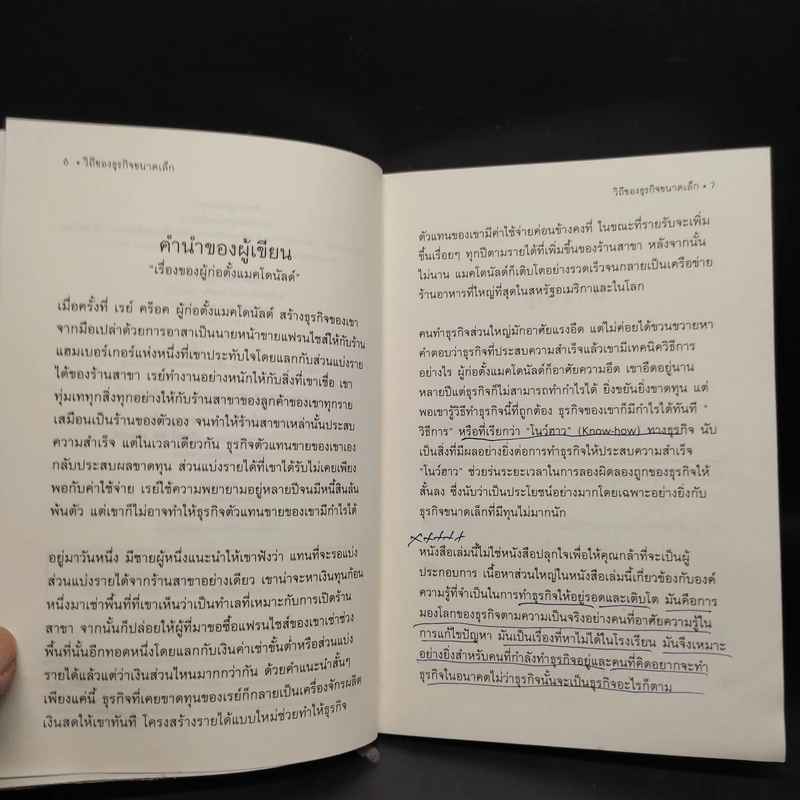 ๖ • วิถีของธุรกิจขนาดเล็ก
คำนำของผู้เขียน
"เรื่องของผู้ก่อตั้งแมคโดนัลด์"
เมื่อครั้งที่ เรย์ คร็อค ผู้ก่อตั้งแมคโดนัลด์ สร้างธุรกิจของเขา
จากมือเปล่าด้วยการอาสาเป็นนายหน้าขายแฟรนไชส์ให้กับร้าน
แฮมเบอร์เกอร์แห่งหนึ่งที่เขาประทับใจโดยแลกกับส่วนแบ่งราย
ได้ของร้านสาขา เรย์ทำงานอย่างหนักให้กับสิ่งที่เขาเชื่อ เขา
ทุ่มเททุกสิ่งทุกอย่างให้กับร้านสาขาของลูกค้าของเขาทุกราย
เสมือนเป็นร้านของตัวเอง จนทำให้ร้านสาขาเหล่านั้นประสบ
ความสำเร็จ แต่ในเวลาเดียวกัน ธุรกิจตัวแทนขายของเขาเอง
กลับประสบผลขาดทุน ส่วนแบ่งรายได้ที่เขาได้รับไม่เคยเพียง
พอกับค่าใช้จ่าย เรย์ใช้ความพยายามอยู่หลายปีจนมีหนี้สินล้น
พ้นตัว แต่เขาก็ไม่อาจทำให้ธุรกิจตัวแทนขายของเขามีกำไรได้
อยู่มาวันหนึ่ง มีชายผู้หนึ่งแนะนำให้เขาฟังว่า แทนที่จะรอแบ่ง
ส่วนแบ่งรายได้จากร้านสาขาอย่างเดียว เขาน่าจะหาเงินทุนก้อน
หนึ่งมาเช่าพื้นที่ที่เขาเห็นว่าเป็นทำเลที่เหมาะกับการเปิดร้าน
สาขา จากนั้นก็ปล่อยให้ผู้ที่มาขอซื้อแฟรนไชส์ของเขาเช่าช่วง
พื้นที่นั้นอีกทอดหนึ่งโดยแลกกับเงินค่าเช่าขั้นต่ำหรือส่วนแบ่ง
รายได้แล้วแต่ว่าเงินส่วนไหนมากกว่ากัน ด้วยคำแนะนำสั้นๆ
เพียงแค่นี้ ธุรกิจที่เคยขาดทุนของเรย์ก็กลายเป็นเครื่องจักรผลิต
เงินสดให้เขาทันที โครงสร้างรายได้แบบใหม่ช่วยทำให้ธุรกิจ
วิถีของธุรกิจขนาดเล็ก • 7
ตัวแทนของเขามีค่าใช้จ่ายค่อนข้างคงที่ ในขณะที่รายรับจะเพิ่ม
ขึ้นเรื่อยๆ ทุกปีตามรายได้ที่เพิ่มขึ้นของร้านสาขา หลังจากนั้น
ไม่นาน แมคโดนัลด์ก็เติบโตอย่างรวดเร็วจนกลายเป็นเครือข่าย
ร้านอาหารที่ใหญ่ที่สุดในสหรัฐอเมริกาและในโลก
คนทำธุรกิจส่วนใหญ่มักอาศัยแรงอึด แต่ไม่ค่อยได้ขวนขวายหา
คำตอบว่าธุรกิจที่ประสบความสำเร็จแล้วเขามีเทคนิควิธีการ
อย่างไร ผู้ก่อตั้งแมคโดนัลด์ก็อาศัยความอึด เขาอึดอยู่นาน
หลายปีแต่ธุรกิจก็ไม่สามารถทำกำไรได้ ยิ่งขยันยิ่งขาดทุน แต่
พอเขารู้วิธีทำธุรกิจนี้ที่ถูกต้อง ธุรกิจของเขาก็มีกำไรได้ทันที "
วิธีการ" หรือที่เรียกว่า "โนว์ฮาว" (Know-how) ทางธุรกิจ นับ
เป็นสิ่งที่มีผลอย่างยิ่งต่อการทำธุรกิจให้ประสบความสำเร็จ
"โนว์ฮาว" ช่วยร่นระยะเวลาในการลองผิดลองถูกของธุรกิจให้
สั้นลง ซึ่งนับว่าเป็นประโยชน์อย่างมากโดยเฉพาะอย่างยิ่งกับ
ธุรกิจขนาดเล็กที่มีทุนไม่มากนัก
หนังสือเล่มนี้ไม่ใช่หนังสือปลุกใจเพื่อให้คุณกล้าที่จะเป็นผู้
ประกอบการ เนื้อหาส่วนใหญ่ในหนังสือเล่มนี้เกี่ยวข้องกับองค์
ความรู้ที่จำเป็นในการทำธุรกิจให้อยู่รอดและเติบโต มันคือการ
มองโลกของธุรกิจตามความเป็นจริงอย่างคนที่อาศัยความรู้ใน
การแก้ไขปัญหา มันเป็นเรื่องที่หาไม่ได้ในโรงเรียน มันจึงเหมาะ
อย่างยิ่งสำหรับคนที่กำลังทำธุรกิจอยู่และคนที่คิดอยากจะทำ
ธุรกิจในอนาคตไม่ว่าธุรกิจนั้นจะเป็นธุรกิจอะไรก็ตาม